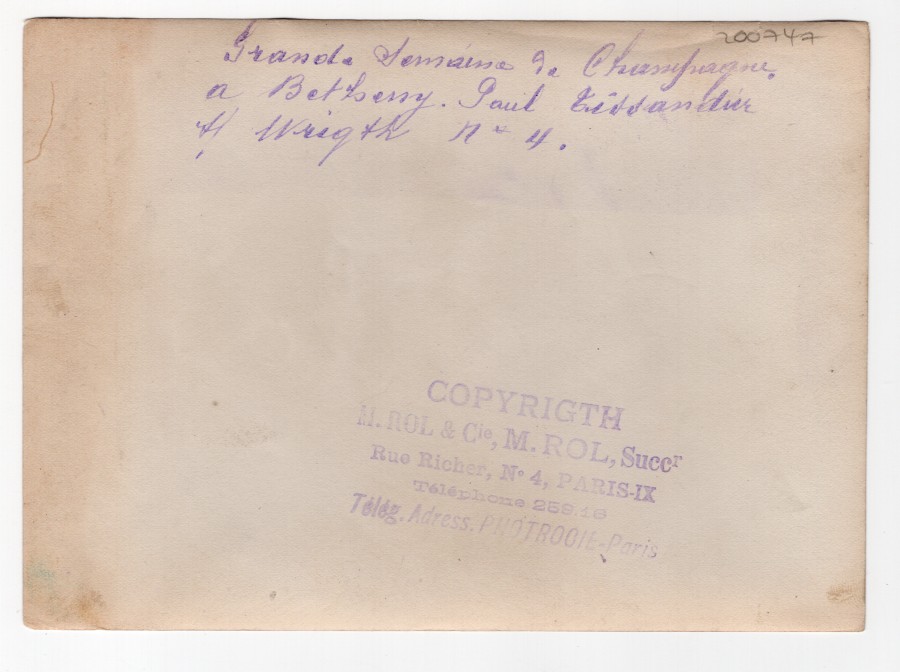 200747
Grande Semaine de Champagne.
a Betheny. Paul Tissandier
Wrigth No 4.
COPYRIGTH
M. ROL & Cie, M. ROL, Succr
Rue Richer, No 4, PARIS-IX
Téléphone 259.18
Télég. Adress. PHOTROCIE-Paris